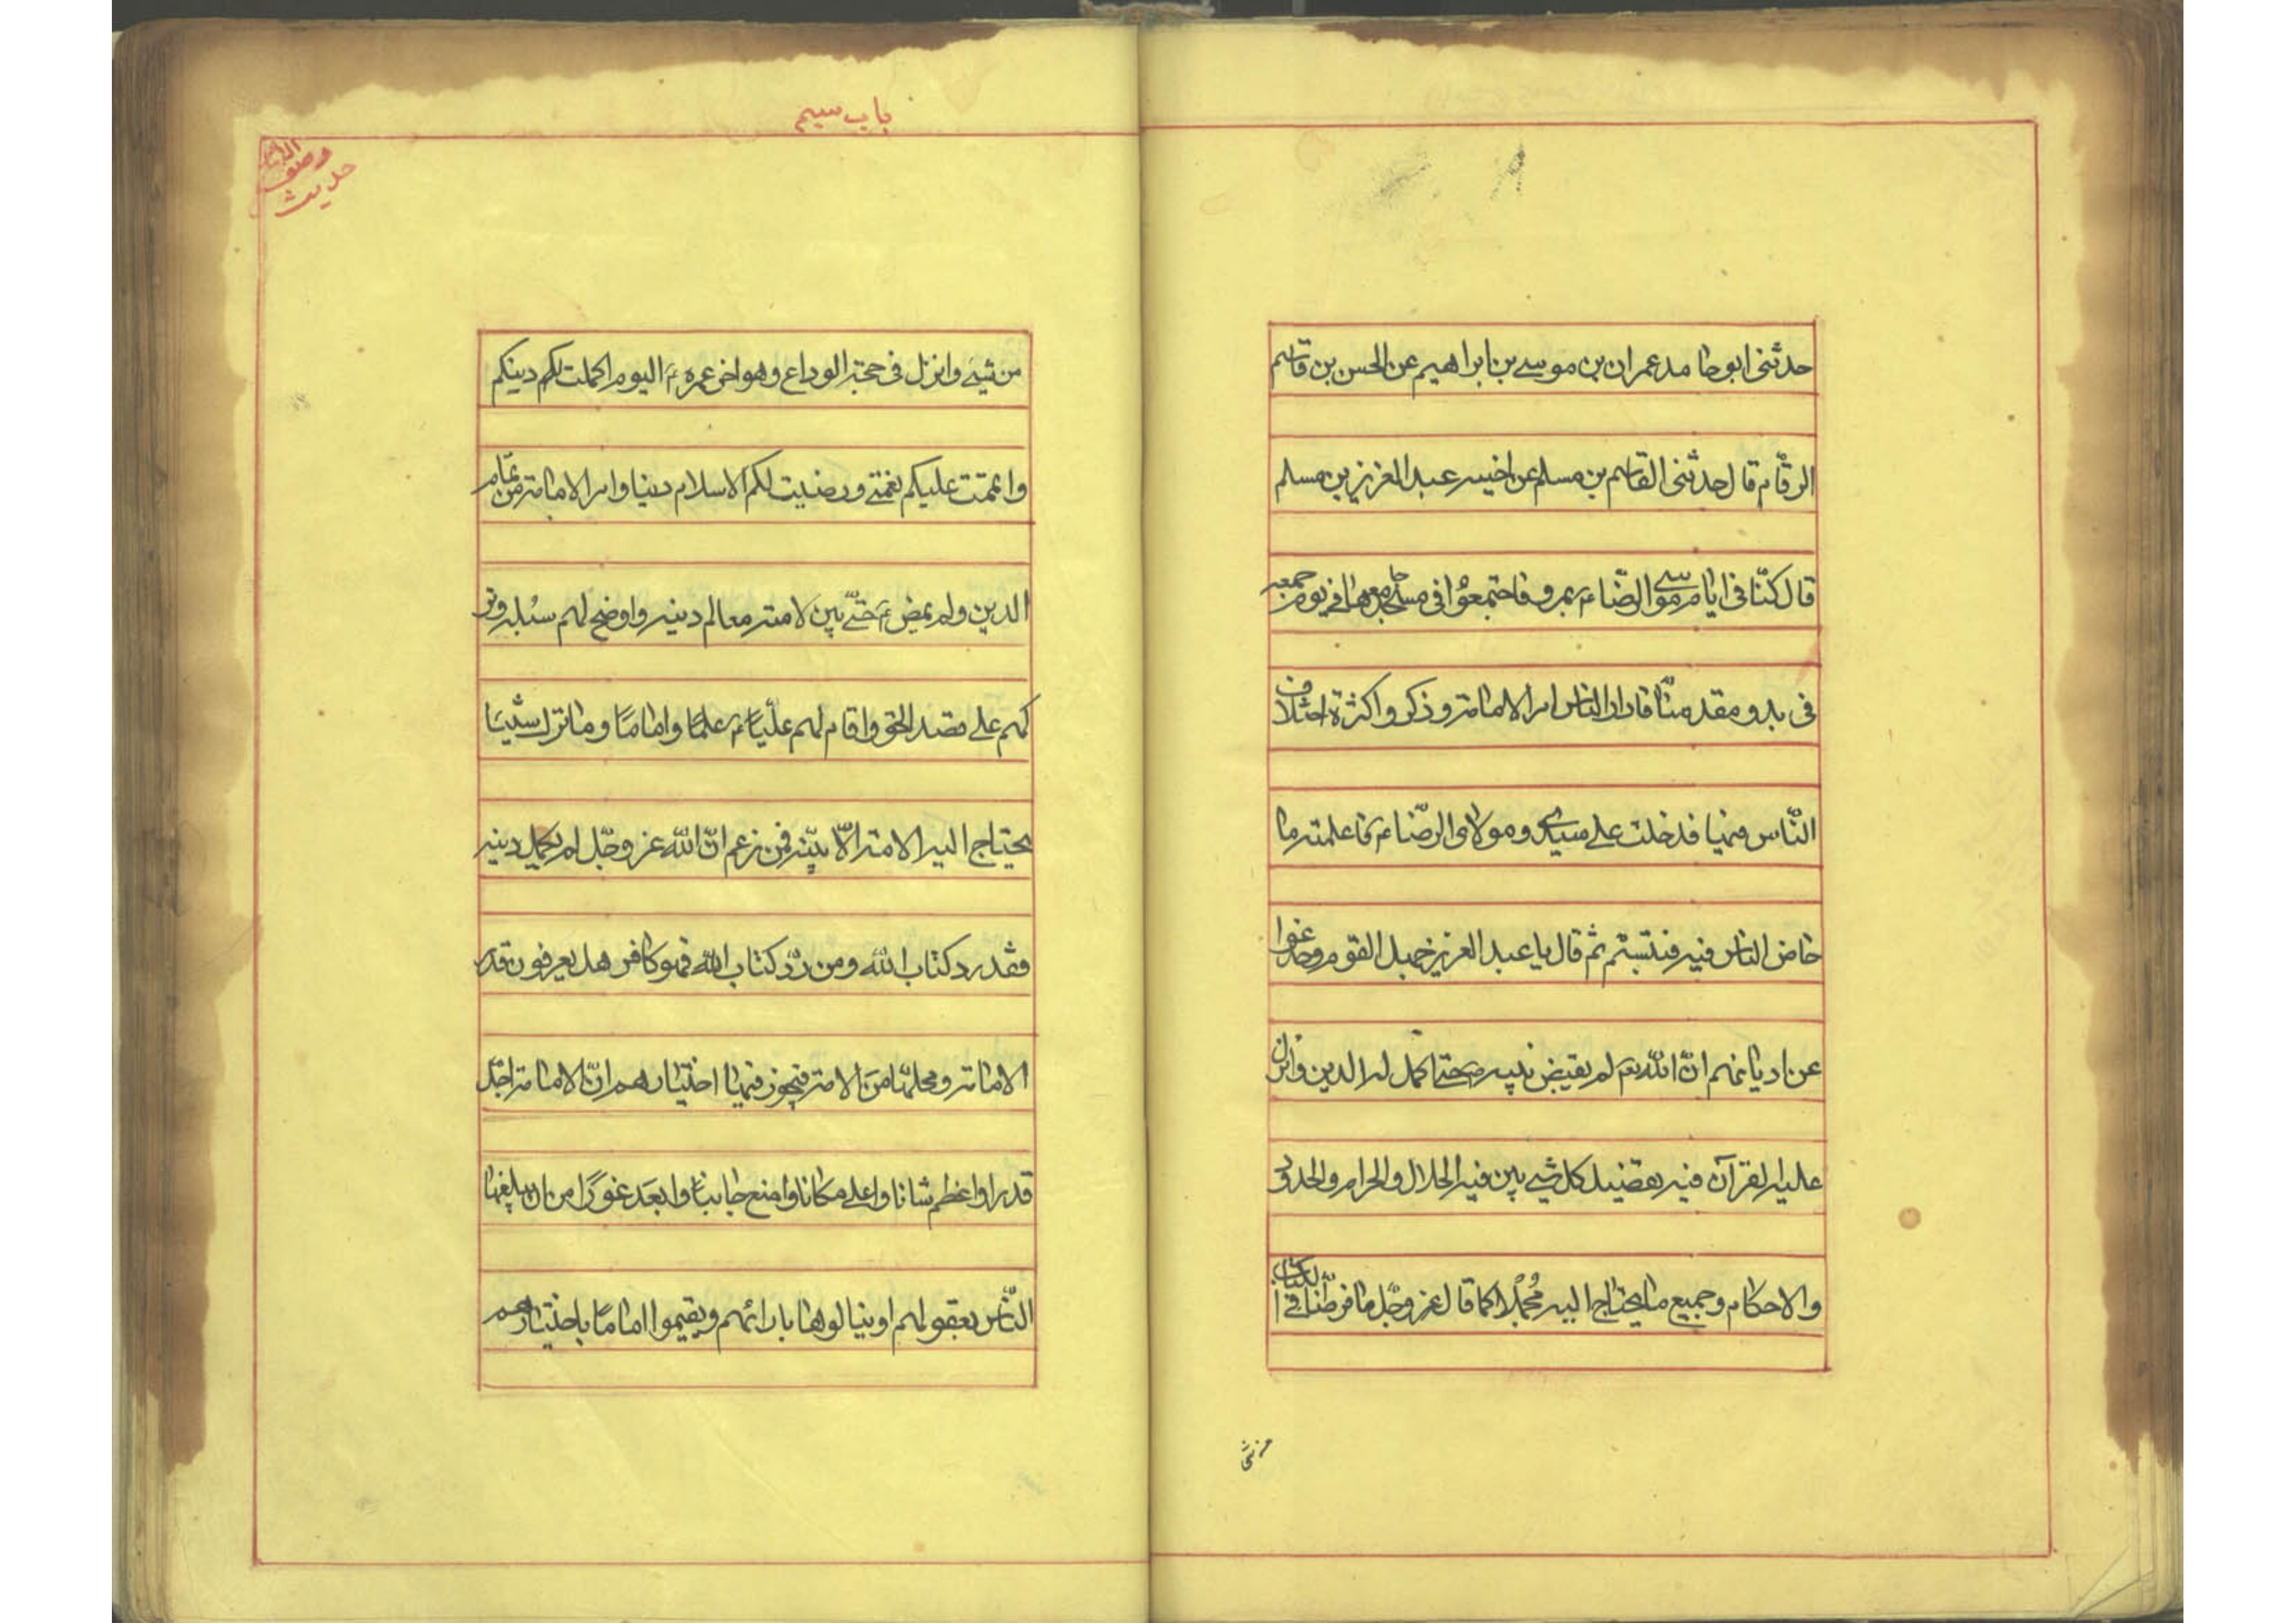 حدثنی ابو حامد عمران بن موسے بن ابراهیم عن الحسن بن قاسم
الرقّام قال حدثنی القاسم بن مسلم عن اخیه عبد العزیز بن مسلم
قال کنّا فی ایام موسی الرّضاء بمرو فاجتمعوا فی مسجد جامعها فی یوم جمعه
فی بدو مقدمنا فادار الناس امر الامامة وذکروا کثرة اختلاف
النّاس فیها فدخلت علے سیدی ومولای الرضاء فاعلمته ما
خاض الناس فیه فتبسّم ثم قال یا عبد العزیز جهل القوم وخدعوا
عن ادیانهم انّ الله لم یقبض نبیه حتے اکمل له الدین وانزل
علیه القرآن فیه تفصیل کل شیء بین فیه الحلال والحرام والحدود
والاحکام وجمیع ما یحتاج الیه مُجملًا کما قال عز وجّل ما فرطنا فی الکتاب
من شئ
باب سیم
حدیث
وصف
من شیئ وانزل فی حجة الوداع وهو اخر عمره الیوم اکملت لکم دینکم
واتممت علیکم نعمتے ورضیت لکم الاسلام دینا وامر الامامة من تمام
الدین ولم یمض حتّے بین لامته معالم دینه واوضح لهم سبله وتر
کهم علے قصد الحق واقام لهم علیّا علمًا وامامًا وما ترک شیئا
یحتاج الیه الامة الّا بیّنه فمن زعم انّ الله عز وجّل لم یکمل دینه
فقد رد کتاب الله ومن ردّ کتاب الله فهو کافر هل یعرفون قدر
الامامة ومحلها من الامة فیجوز فیها اختیارهم انّ الامامة اجّل
قدرا واعظم شانا واعلے مکانا وامنع جانبا وابعد غورًا من ان یبلغها
النّاس بعقولهم او ینالوها بارائهم ویقیموا امامًا باختیارهم